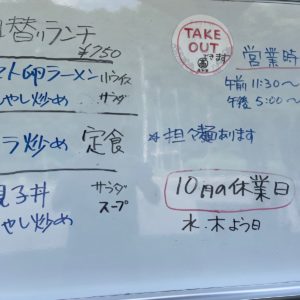 替りランチ
¥750
マト卵ラーメン 小ライス
やし炒め サラダ
ラ炒め 定食
親子丼 サラダ
やし炒め スープ
TAKE
OUT
できます
営業時
午前 11:30〜
午後 5:00〜
☆担々麺あります
10月の休業日
水・木よう日